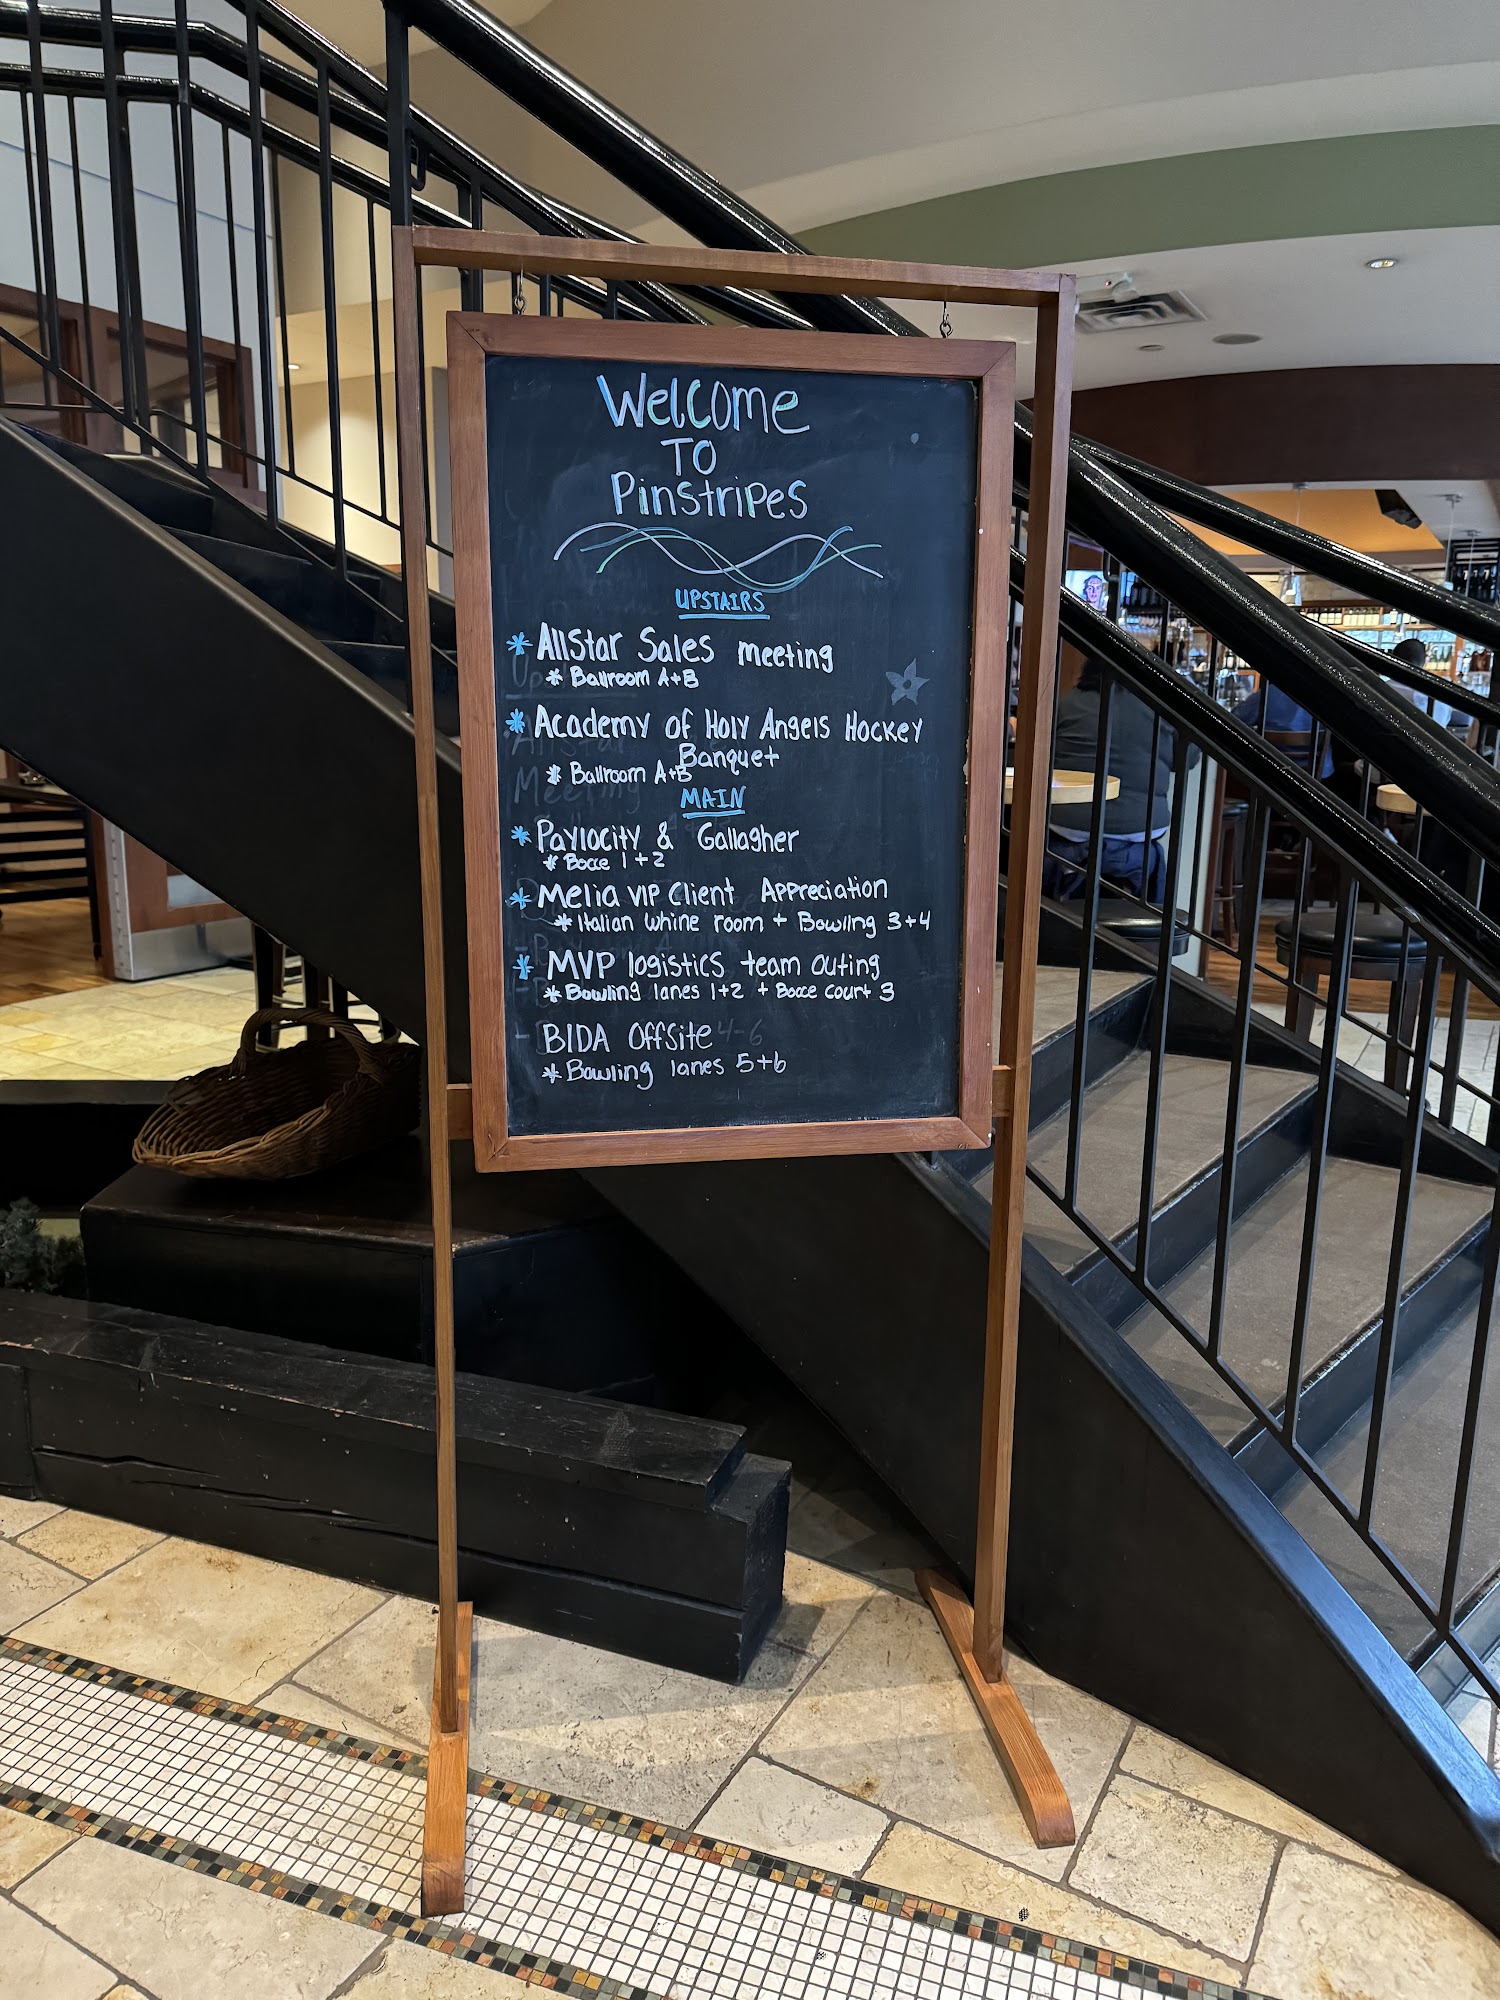 Welcome
TO
Pinstripes
UPSTAIRS
* Allstar Sales meeting
* Ballroom A+B
* Academy of Holy Angels Hockey
Banquet
* Ballroom A+B
MAIN
* Paylocity & Gallagher
* Bocce 1+2
* Melia VIP Client Appreciation
* Italian Whine room + Bowling 3+4
* MVP logistics team outing
* Bowling lanes 1+2 + Bocce court 3
- BIDA Offsite
* Bowling lanes 5+6